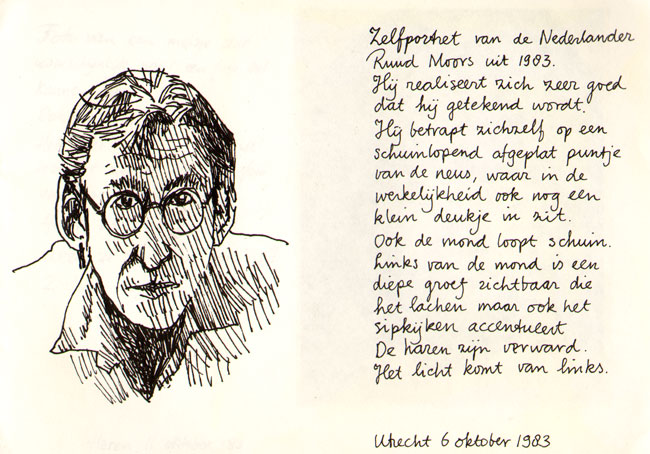 Zelfportret van de Nederlander
Ruud Moors uit 1983.
Hij realiseert zich zeer goed
dat hij getekend wordt.
Hij betrapt zichzelf op een
schuinlopend afgeplat puntje
van de neus, waar in de
werkelijkheid ook nog een
klein deukje in zit.
Ook de mond loopt schuin.
Links van de mond is een
diepe groef zichtbaar die
het lachen maar ook het
sipkijken accentueert
De haren zijn verward.
Het licht komt van links.
Utrecht 6 oktober 1983